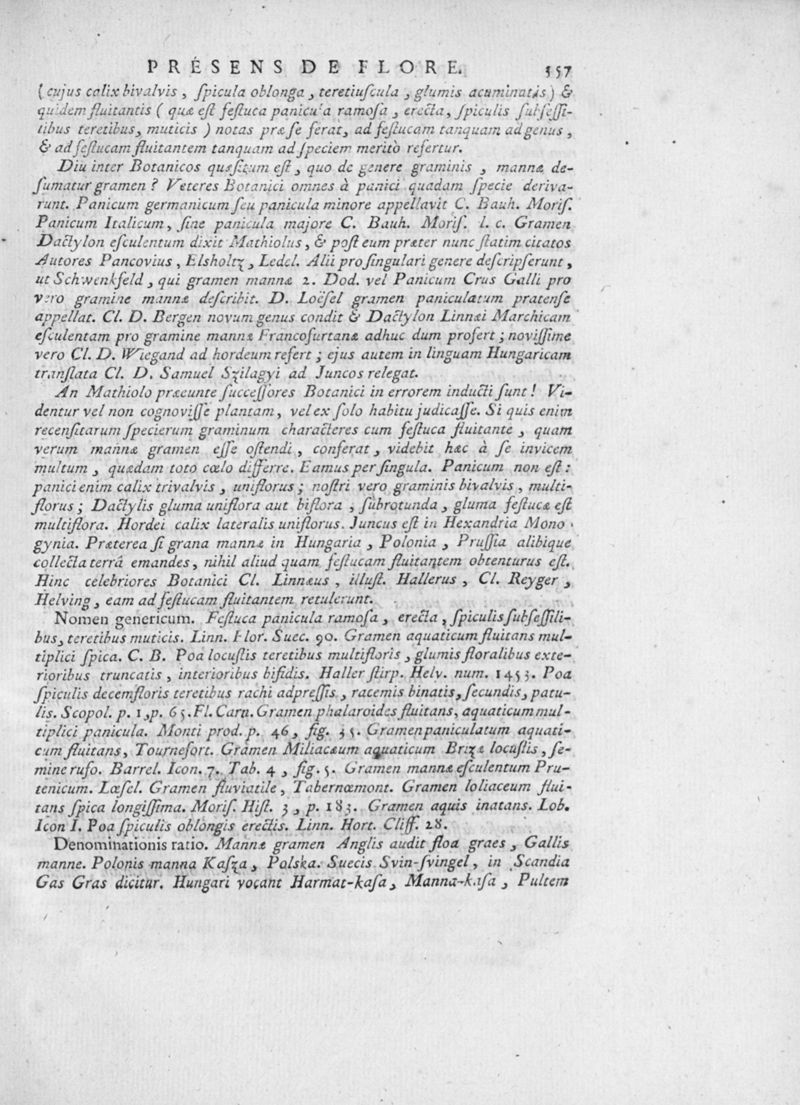 PRÉSENS DE FLORE. 557
( cujus calix bivalvis , ſpicula oblonga , teretiuſcula , glumis acuminatis ) &
quidem fluitantis ( quæ eſt feſtuca panicula ramoſa , erecta, ſpiculis ſubſeſſi-
libus teretibus, muticis ) notas præ ſe ferat, ad feſtucam tanquam ad genus ,
& ad feſtucam fluitantem tanquam ad ſpeciem meritò refertur.
Diu inter Botanicos quæſitum eſt , quo de genere graminis , mannæ de-
ſumatur gramen ? Veteres Botanici omnes à panici quadam ſpecie deriva-
runt. Panicum germanicum ſeu panicula minore appellavit C. Bauh. Moriſ.
Panicum Italicum, ſine panicula majore C. Bauh. Moriſ. l. c. Gramen
Dactylon eſculentum dixit Mathiolus , & poſt eum præter nunc ſtatim citatos
Autores Pancovius , Elsholtz, Ledel. Alii pro ſingulari genere deſcripſerunt,
ut Schwenkfeld , qui gramen mannæ 2. Dod. vel Panicum Crus Galli pro
vero gramine mannæ deſcribit. D. Loëſel gramen paniculatum pratenſe
appellat. Cl. D. Bergen novum genus condit & Dactylon Linnæi Marchicam
eſculentam pro gramine mannæ Francofurtanæ adhuc dum profert ; noviſſime
vero Cl. D. Wiegand ad hordeum refert ; ejus autem in linguam Hungaricam
tranſlata Cl. D. Samuel Szilagyi ad Juncos relegat.
An Mathiolo præeunte ſucceſſores Botanici in errorem inducti ſunt ! Vi-
dentur vel non cognoviſſe plantam, vel ex ſolo habitu judicaſſe. Si quis enim
recenſitarum ſpecierum graminum characteres cum feſtuca fluitante , quam
verum mannæ gramen eſſe oſtendi , conferat , videbit hæc à ſe invicem
multum , quædam toto cælo differre. Eamus per ſingula. Panicum non eſt :
panici enim calix trivalvis , uniflorus ; noſtri vero graminis bivalvis , multi-
florus ; Dactylis gluma uniflora aut biflora , ſubrotunda , gluma feſtucæ eſt
multiflora. Hordei calix lateralis uniflorus. Juncus eſt in Hexandria Mono-
gynia. Præterea ſi grana mannæ in Hungaria , Polonia , Pruſſia alibique
collecta terrâ emandes, nihil aliud quam feſtucam fluitantem obtenturus eſt.
Hinc celebriores Botanici Cl. Linnæus , illuſt. Hallerus , Cl. Reyger ,
Helving , eam ad feſtucam fluitantem retulerunt.
Nomen genericum. Feſtuca panicula ramoſa , erecta , ſpiculis ſubſeſſili-
bus, teretibus muticis. Linn. Flor. Suec. 90. Gramen aquaticum fluitans mul-
tiplici ſpica. C. B. Poa locuſtis teretibus multifloris , glumis floralibus exte-
rioribus truncatis , interioribus bifidis. Haller ſtirp. Helv. num. 1453. Poa
ſpiculis decemfloris teretibus rachi adpreſſis , racemis binatis, ſecundis, patu-
lis. Scopol. p. 1, p. 65. Fl. Carn. Gramen phalaroides fluitans, aquaticum mul-
tiplici panicula. Monti prod. p. 46, fig. 35. Gramen paniculatum aquati-
cum fluitans, Tournefort. Gramen Miliaceum aquaticum Brizæ locuſtis, ſe-
mine rufo. Barrel. Icon. 7. Tab. 4 , fig. 5. Gramen mannæ eſculentum Pru-
tenicum. Lœſel. Gramen fluviatile , Tabernœmont. Gramen loliaceum flui-
tans ſpica longiſſima. Moriſ. Hiſt. 3 , p. 183. Gramen aquis inatans. Lob.
Icon I. Poa ſpiculis oblongis erectis. Linn. Hort. Cliff. 28.
Denominationis ratio. Mannæ gramen Anglis audit floa graes , Gallis
manne. Polonis manna Kaſza , Polska. Suecis Svin-ſvingel , in Scandia
Gas Gras dicitur. Hungari vocant Harmat-kaſa , Manna-kaſa , Pultem